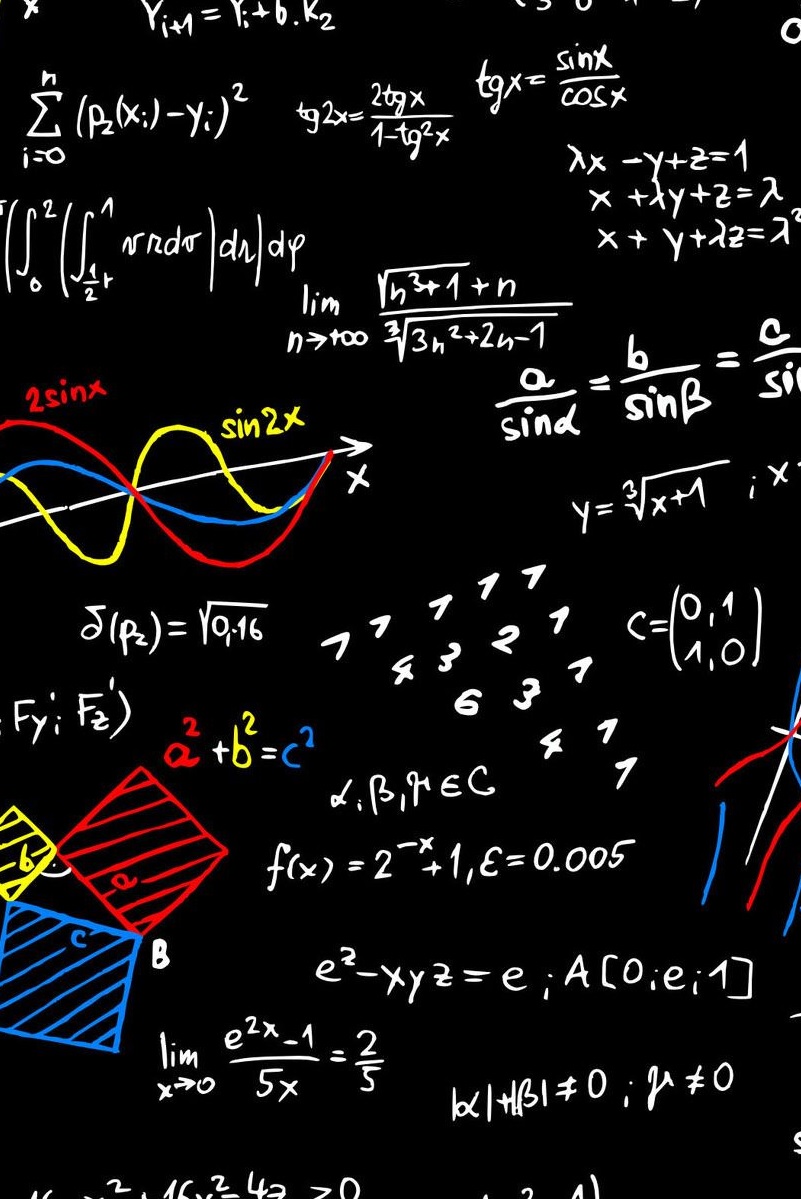 Yᵢ₊₁ = Yᵢ + b.K₂
∑ᵢ₌₀ⁿ (p₂(xᵢ) - yᵢ)²
tg2x = 2tgx / 1-tg²x
tgx = sinx / cosx
λx - y + z = 1
x + λy + z = λ
x + y + λz = λ²
lim n→+∞ √n³+1 + n / ∛3n²+2n-1
a / sinα = b / sinβ = c / si
2sinx
sin2x
x
y = ∛x+1 ; x
δ(p₂) = √0,16
1 1 1 1 1
4 3 2 1
6 3 1
4 1
1
C = (0,1
1,0)
Fy'; Fz')
a² + b² = c²
α, β, γ ∈ C
b
a
f(x) = 2⁻ˣ + 1, ε = 0.005
c
B
eᶻ - xyz = e ; A[0; e; 1]
lim x→0 e²ˣ - 1 / 5x = 2 / 5
|α| + |β| ≠ 0 ; γ ≠ 0